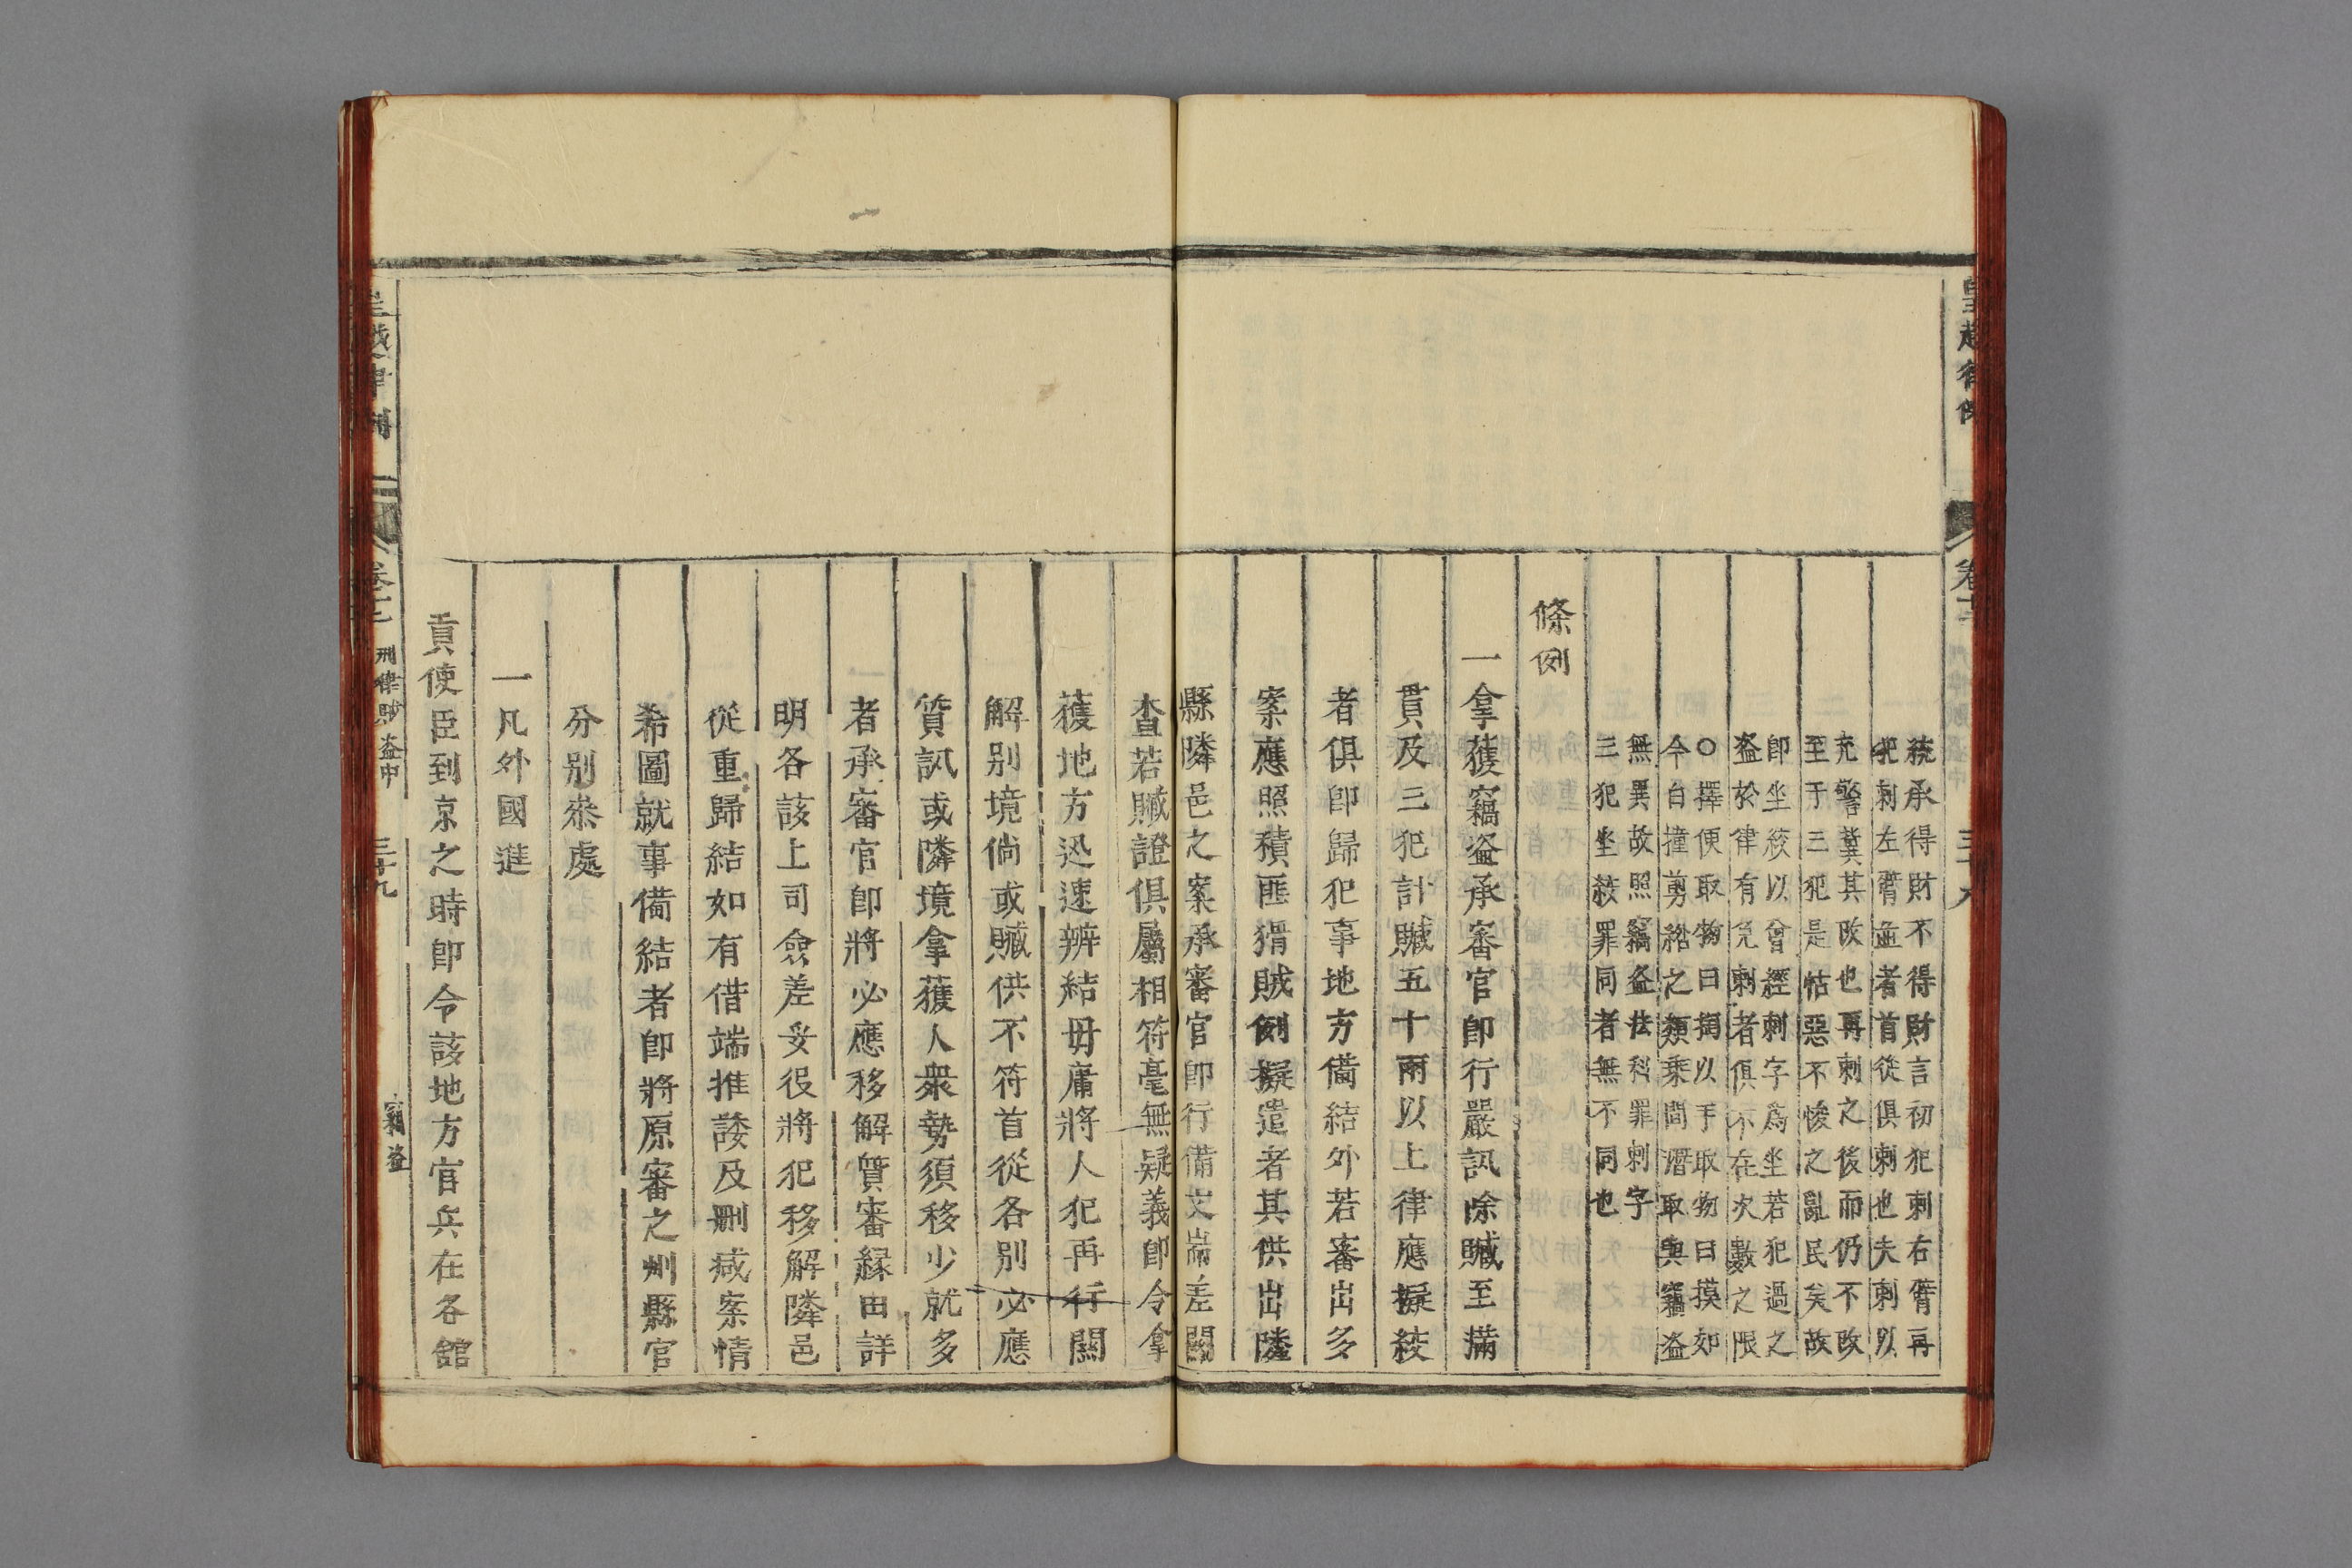 皇越律例
卷十二
三十八
統承得財不得財言初犯刺右臂再
犯刺左臂並者首從俱刺也夫刺以
充警冀其改也再刺之後而仍不改
至于三犯是怙惡不悛之亂民矣故
卽坐絞以曾經刺字爲坐若犯過之
盗於律有免刺者俱不在次數之限
○擇便取物曰掏以手取物曰摸如
今白撞剪綹之類乘間潛取與竊盗
無異故照竊盗法科罪刺字
三犯坐絞罪同者無不同也
條例
一拿獲竊盗承審官卽行嚴訊除贓至滿
貫及三犯計贓五十兩以上律應擬絞
者俱卽歸犯事地方備結外若審出多
案應照積匪猾賊例擬遣者其供出隣
縣隣邑之案承審官卽行備文耑差關
查若贓證俱屬相符毫無疑義卽令拿
獲地方迅速辨結毋庸將人犯再行關
解別境倘或贓供不符首從各別必應
質訊或隣境拿獲人衆勢須移少就多
者承審官卽將必應移解質審緣由詳
明各該上司僉差妥役將犯移解隣邑
從重歸結如有借端推諉及删减案情
希圖就事備結者卽將原審之州縣官
分別叅處
一凡外國進
貢使臣到京之時卽令該地方官兵在各館
皇越律例
卷十二
刑律賊盗中
三十九
竊盗